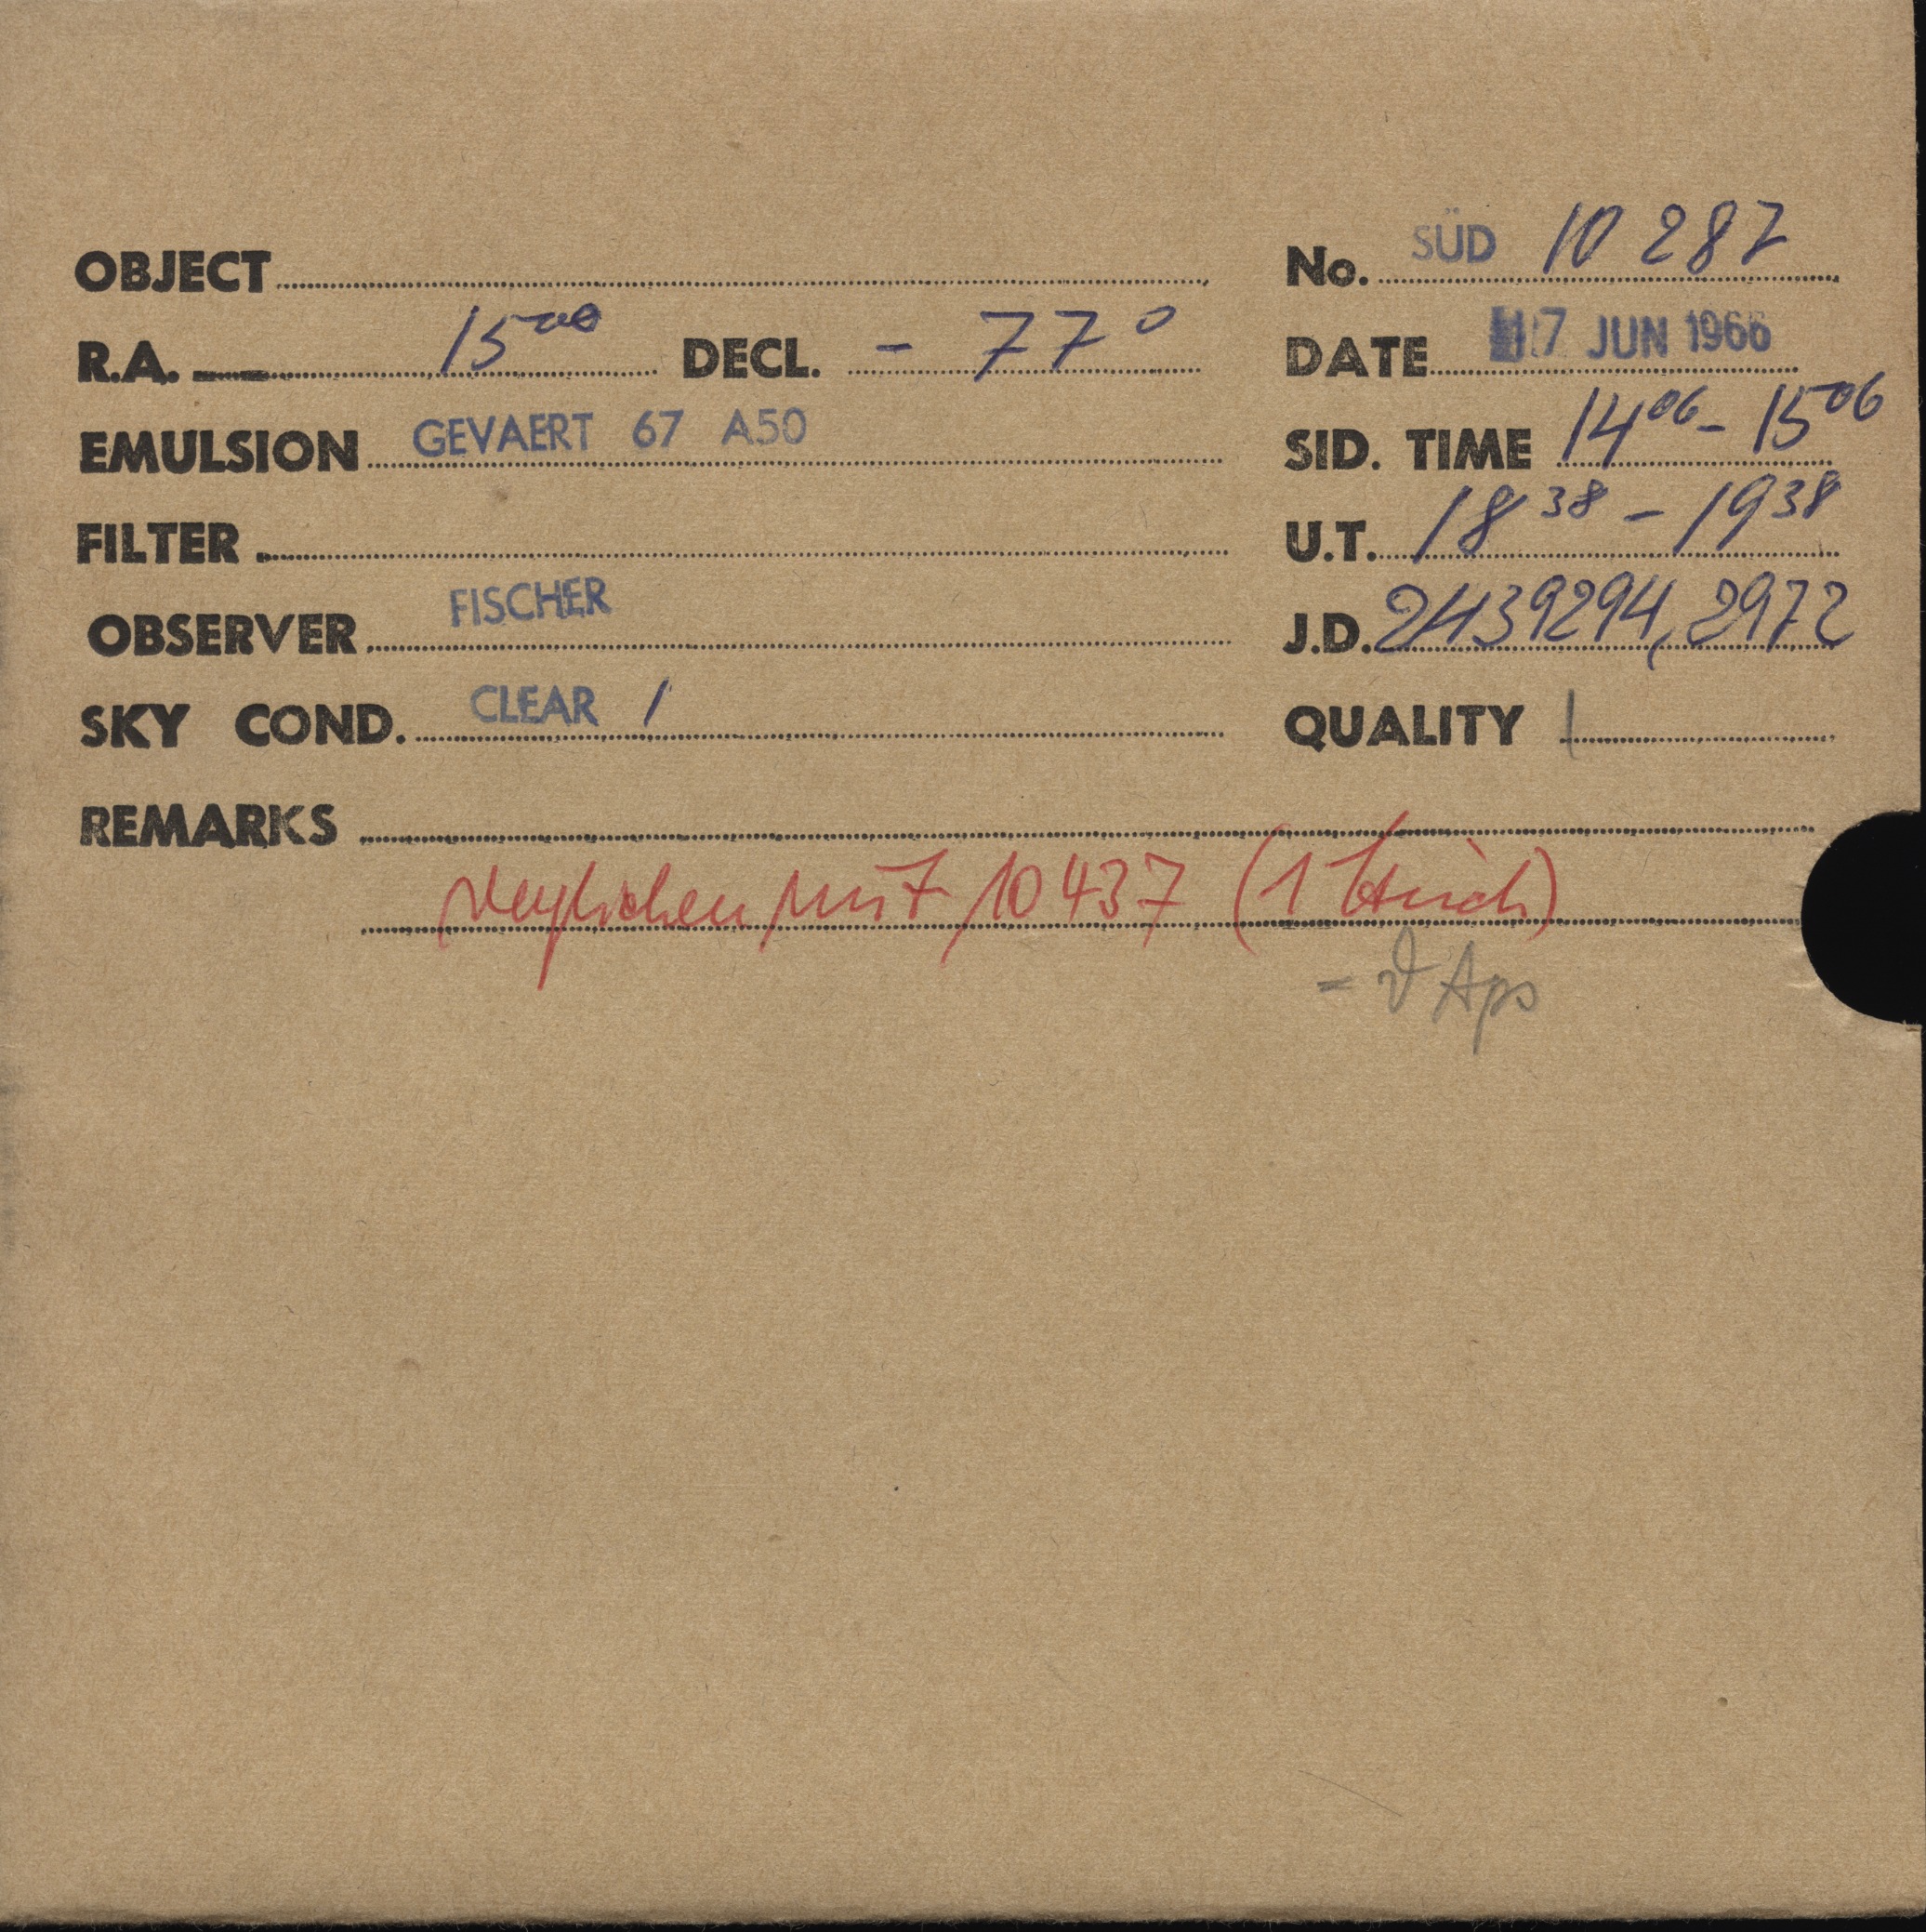 OBJECT No. SÜD 10 287
R.A. 15 00 DECL. - 77°
DATE 17 JUN 1966
EMULSION GEVAERT 67 A50
SID. TIME 14 06 - 15 06
FILTER
U.T. 18 38 - 19 38
OBSERVER FISCHER
J.D. 2439294,2972
SKY COND. CLEAR 1
QUALITY 1
REMARKS
verglichen mit 10437 (1 Strich)
- ϑ Aps